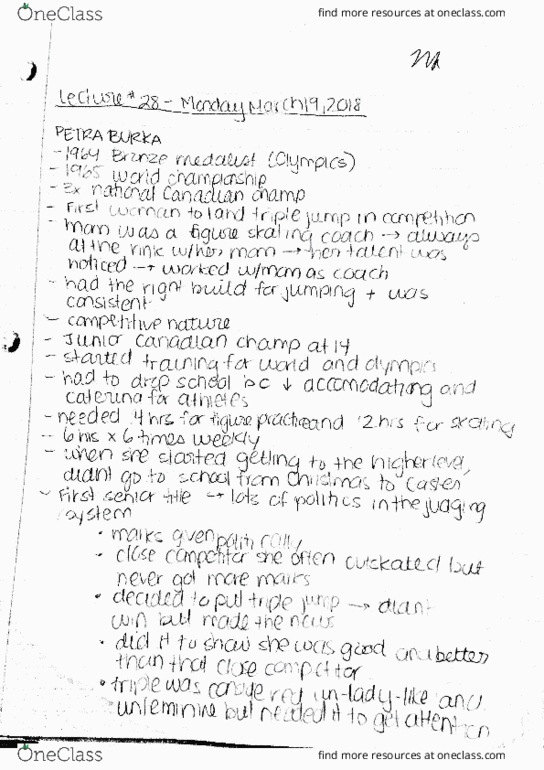 OneClass
find more resources at oneclass.com
Lecture # 28 - Monday March 19, 2018
PETRA BURKA
- 1964 Bronze medalist (Olympics)
- 1965 world championship
- 3x national Canadian champ
- First woman to land triple jump in competition
- mom was a figure skating coach → always
at the rink w/her mom → her talent was
noticed → worked w/mom as coach
- had the right build for jumping + was
consistent
- competitive nature
- Junior Canadian champ at 14
- started training for world and olympics
- had to drop school bc ↓ accomodating and
catering for athletes
- needed 4 hrs for figure practice and 2 hrs for skating
- 6 hrs x 6 times weekly
- when she started getting to the higher level,
didnt go to school from Christmas to Easter
- First senior title → lots of politics in the judging
system
• marks given politically
• close competitor she often outskated but
never got more marks
• decided to put triple jump → didnt
win but made the news
• did it to show she was good and better
than that close competitor
• triple was considered un-lady-like and
unfeminine but needed it to get attention
OneClass
find more resources at oneclass.com